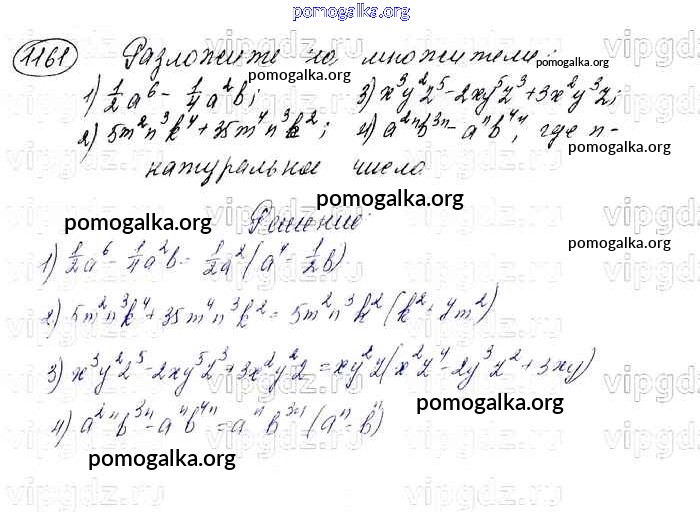 pomogalka.org
1161 Разложите на множители:
pomogalka.org
pomogalka.org
1) 1/2 a⁶ - 1/4 a²b; 3) x³y²z⁵ - 2xy⁵z³ + 3x²y³z;
2) 5m²n³k⁴ + 35m⁴n³k²; 4) a²ⁿb³ⁿ - aⁿb⁴ⁿ, где n-
pomogalka.org
pomogalka.org
натуральное число
pomogalka.org
pomogalka.org
Решение:
pomogalka.org
1) 1/2 a⁶ - 1/4 a²b = 1/2 a² (a⁴ - 1/2 b)
2) 5m²n³k⁴ + 35m⁴n³k² = 5m²n³k² (k² + 7m²)
3) x³y²z⁵ - 2xy⁵z³ + 3x²y²z = xy²z (x²z⁴ - 2y³z² + 3xy)
pomogalka.org
4) a²ⁿb³ⁿ - aⁿb⁴ⁿ = aⁿb³ⁿ (aⁿ - bⁿ)
pomogalka.org